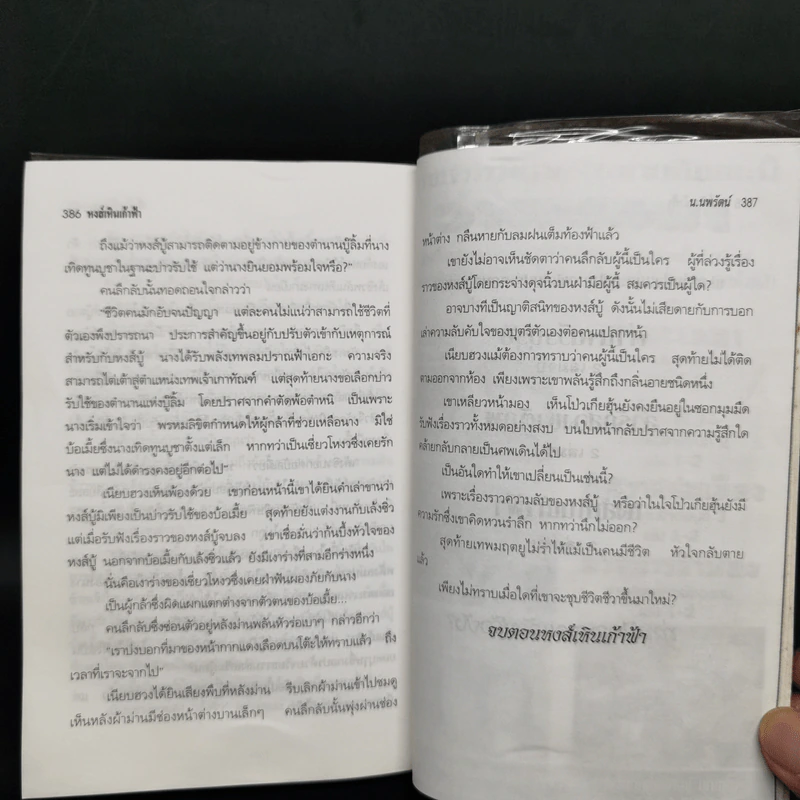 386 หงส์เหินเก้าฟ้า
ถึงแม้ว่าหงส์บู้สามารถติดตามอยู่ข้างกายของตำนานบู๊ลิ้มที่นาง
เทิดทูนบูชาในฐานะบ่าวรับใช้ แต่ว่านางยินยอมพร้อมใจหรือ?"
คนลึกลับนั้นทอดถอนใจกล่าวว่า
"ชีวิตคนมักอับจนปัญญา แต่ละคนไม่แน่ว่าสามารถใช้ชีวิตที่
ตัวเองพึงปรารถนา ประการสำคัญขึ้นอยู่กับปรับตัวเข้ากับเหตุการณ์
สำหรับกับหงส์บู้ นางได้รับพลังเทพลมปราณฟ้าเอกะ ความจริง
สามารถไต่เต้าสู่ตำแหน่งเทพเจ้าเกาทัณฑ์ แต่สุดท้ายนางขอเลือกบ่าว
รับใช้ของตำนานแห่งบู๊ลิ้ม โดยปราศจากคำตัดพ้อตำหนิ เป็นเพราะ
นางเริ่มเข้าใจว่า พรหมลิขิตกำหนดให้ผู้กล้าที่ช่วยเหลือนาง มิใช่
บ้อเมี้ยซึ่งนางเทิดทูนบูชาตั้งแต่เล็ก หากทว่าเป็นเซี่ยวโหงวซึ่งเคยรัก
นาง แต่ไม่ได้ดำรงคงอยู่อีกต่อไป"
เนียบฮวงเห็นพ้องด้วย เขาก่อนหน้านี้เขาได้ยินคำเล่าขานว่า
หงส์บู้มิเพียงเป็นบ่าวรับใช้ของบ้อเมี้ย สุดท้ายยังแต่งงานกับเล้งชิ่ว
แต่เมื่อรับฟังเรื่องราวของหงส์บู้จบลง เขาเชื่อมั่นว่าก้นบึ้งหัวใจของ
หงส์บู้ นอกจากบ้อเมี้ยกับเล้งชิ่วแล้ว ยังมีเงาร่างที่สามอีกร่างหนึ่ง
นั่นคือเงาร่างของเซี่ยวโหงวซึ่งเคยฝ่าฟันผองภัยกับนาง
เป็นผู้กล้าซึ่งผิดแผกแตกต่างจากตัวตนของบ้อเมี้ย...
คนลึกลับซึ่งซ่อนตัวอยู่หลังม่านพลันหัวร่อเบาๆ กล่าวอีกว่า
"เราบ่งบอกที่มาของหน้ากากแดงเลือดบนโต๊ะให้ทราบแล้ว ถึง
เวลาที่เราจะจากไป"
เนียบฮวงได้ยินเสียงพึ่บที่หลังม่าน รีบเลิกผ้าม่านเข้าไปชมดู
เห็นหลังผ้าม่านมีช่องหน้าต่างบานเล็กๆ คนลึกลับนั้นพุ่งผ่านช่อง
น.นพรัตน์ 387
หน้าต่าง กลืนหายกับลมฝนเต็มท้องฟ้าแล้ว
เขายังไม่อาจเห็นชัดตาว่าคนลึกลับผู้นี้เป็นใคร ผู้ที่ล่วงรู้เรื่อง
ราวของหงส์บู้โดยกระจ่างดุจนิ้วบนฝ่ามือผู้นี้ สมควรเป็นผู้ใด?
อาจบางทีเป็นญาติสนิทของหงส์บู้ ดังนั้นไม่เสียดายกับการบอก
เล่าความลับคับใจของบุตรีตัวเองต่อคนแปลกหน้า
เนียบฮวงแม้ต้องการทราบว่าคนผู้นี้เป็นใคร สุดท้ายไม่ได้ติด
ตามออกจากห้อง เพียงเพราะเขาพลันรู้สึกถึงกลิ่นอายชนิดหนึ่ง
เขาเหลียวหน้ามอง เห็นโป่วเกียฮุ้นยังคงยืนอยู่ในซอกมุมมืด
รับฟังเรื่องราวทั้งหมดอย่างสงบ บนใบหน้ากลับปราศจากความรู้สึกใด
คล้ายกับกลับกลายเป็นศพเดินได้ไป
เป็นอันใดทำให้เขาเปลี่ยนเป็นเช่นนี้?
เพราะเรื่องราวความลับของหงส์บู้ หรือว่าในใจโป่วเกียฮุ้นยังมี
ความรักซึ่งเขาคิดหวนรำลึก หากทว่านึกไม่ออก?
สุดท้ายเทพมฤตยูไม่ร่ำไห้แม้เป็นคนมีชีวิต หัวใจกลับตาย
แล้ว
เพียงไม่ทราบเมื่อใดที่เขาจะชุบชีวิตชีวาขึ้นมาใหม่?
จบตอนหงส์เหินเก้าฟ้า